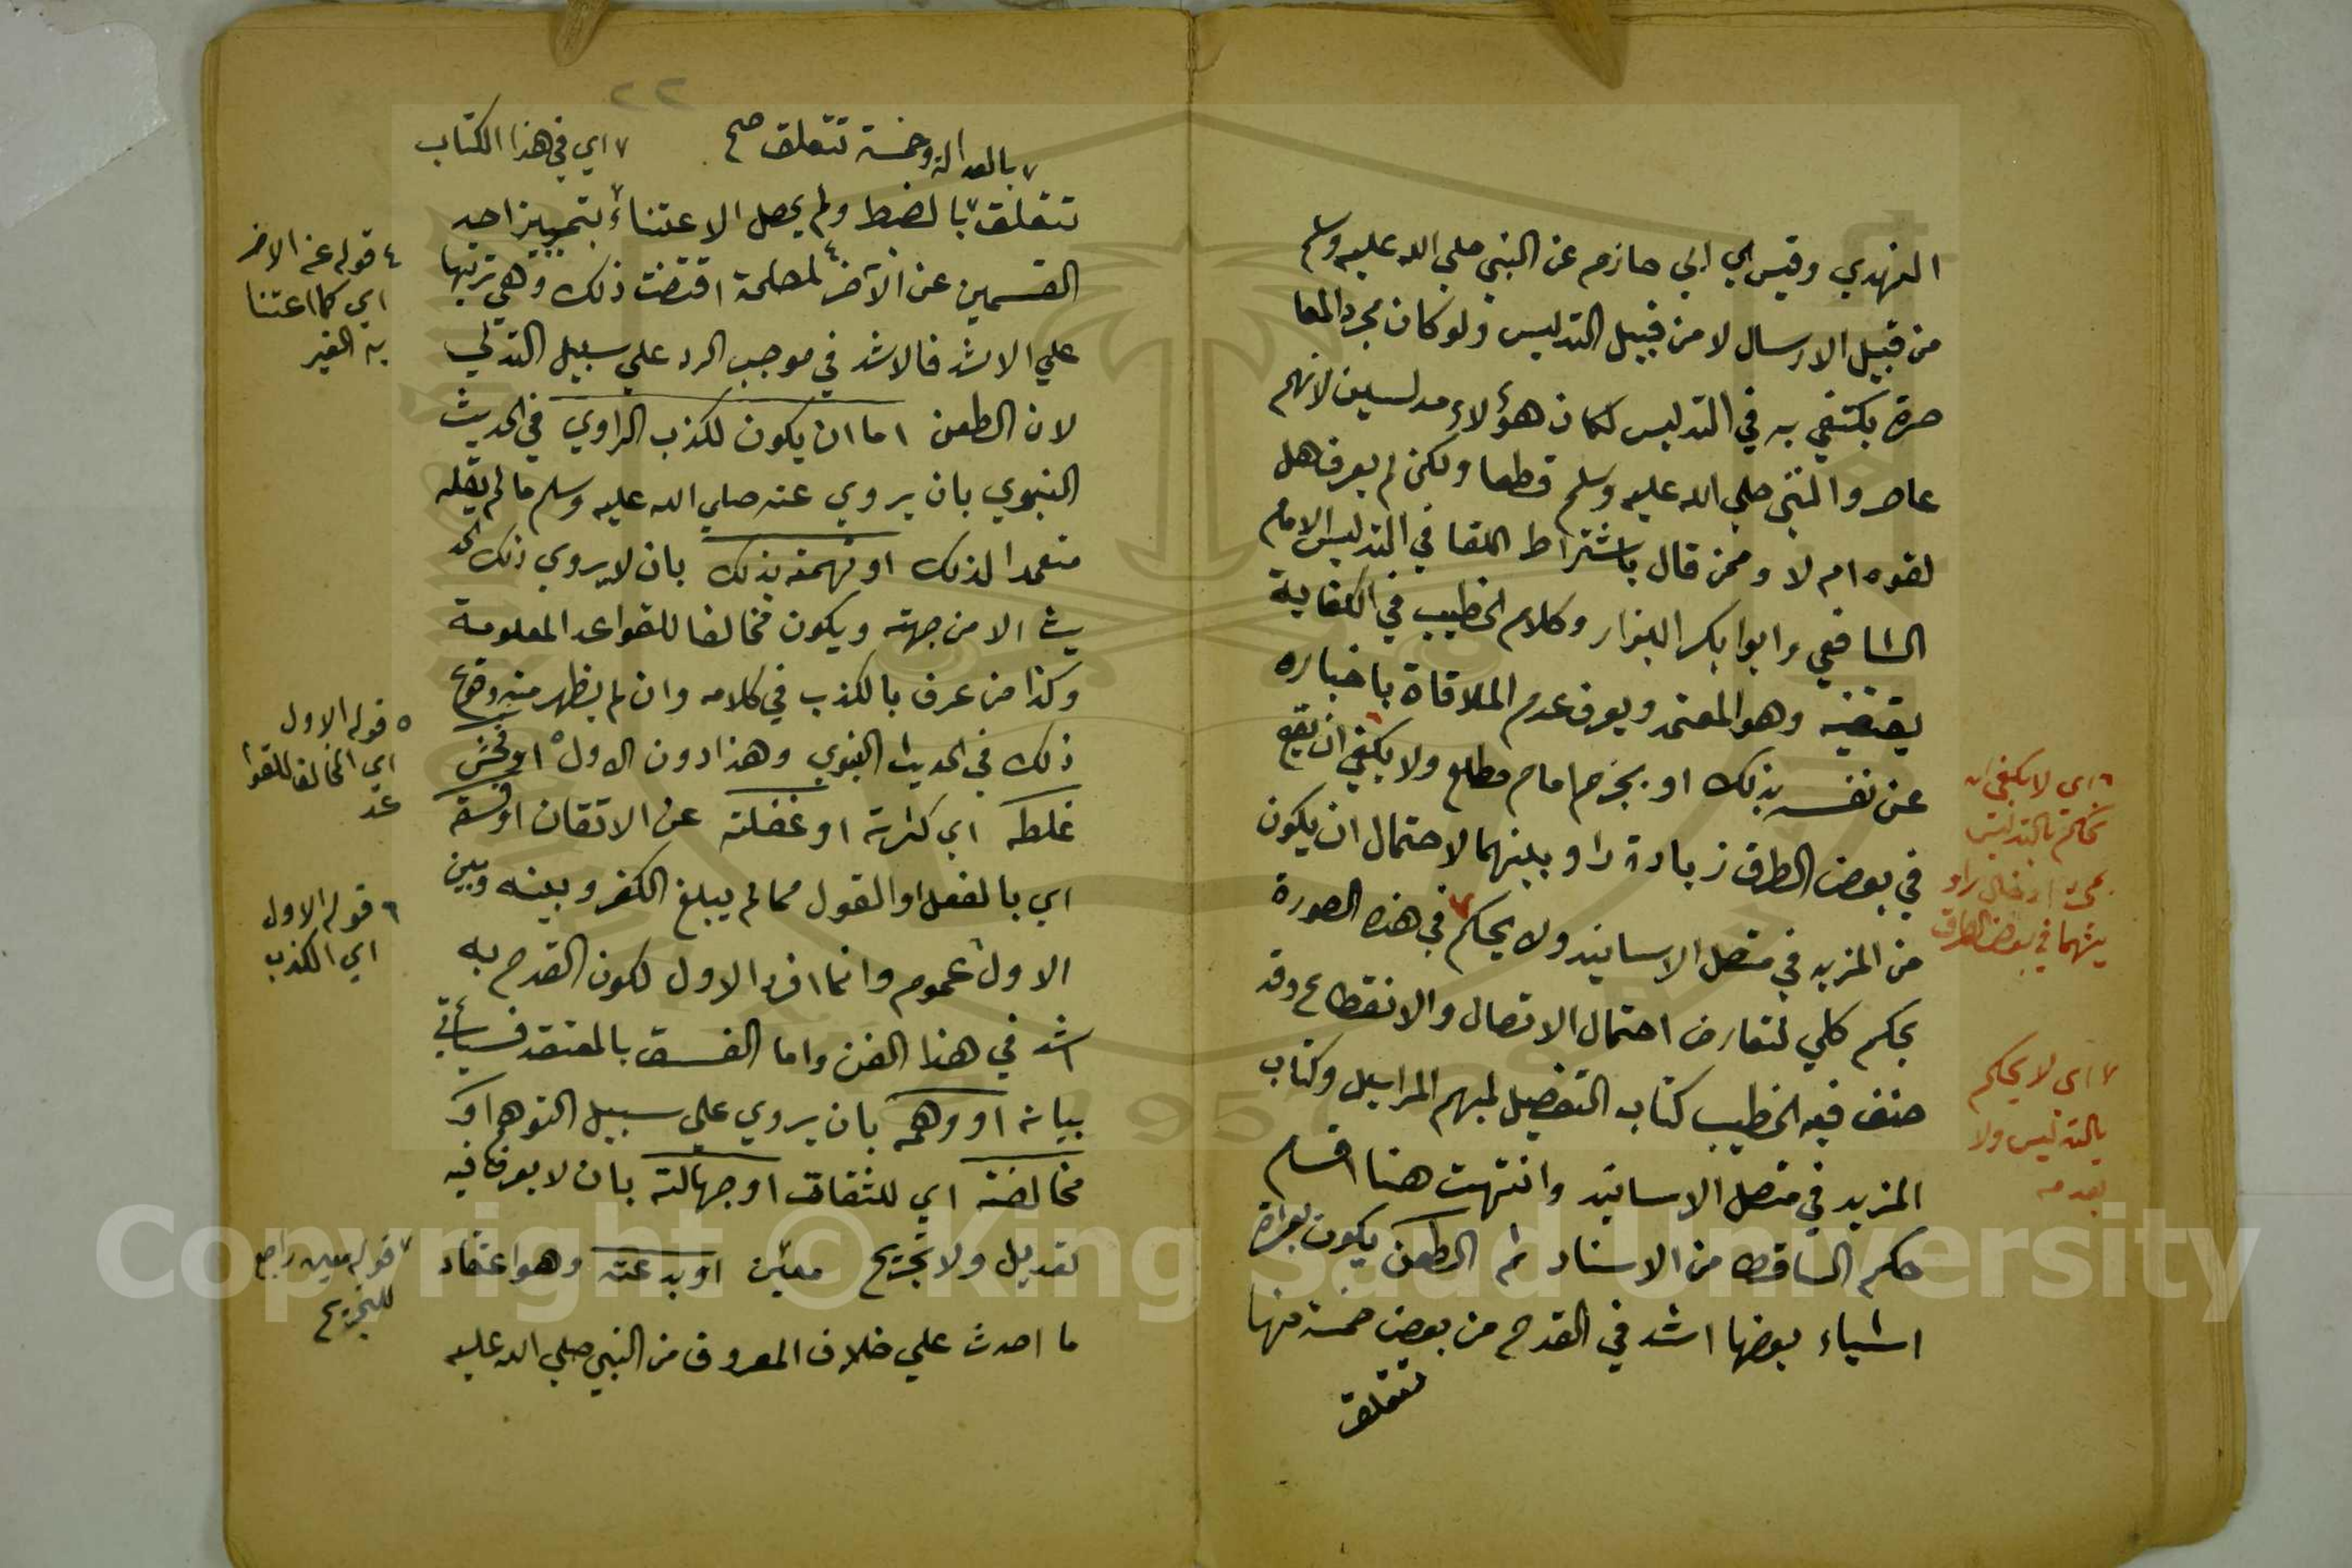 النهدي وقيس بن ابي حازم عن النبي صلي الله عليه وسلم
من قبيل الارسال لا من قبيل التدليس ولو كان مجرد المعا
صرة يكتفي به في التدليس لكان هؤلاء مدلسين لانهم
عاصروا النبي صلي الله عليه وسلم قطعا ولكن لم يعرف هل
لقوه ام لا وممن قال باشتراط اللقا في التدليس الامام
الشافعي وابوا بكر البزار وكلام الخطيب في الكفاية
يقتضيه وهو المعتمد ويعرف عدم الملاقاة باخباره
عن نفسه بذلك او بجزم امام مطلع ولا يكفي ٦ ان يقع
في بعض الطرق زيادة راو بينهما لاحتمال ان يكون
من المزيد في متصل الاسانيد ولا يحكم ٧ في هذه الصورة
بحكم كلي لتعارض احتمال الاتصال والانقطاع وقد
صنف فيه الخطيب كتاب التفصيل لمبهم المراسيل وكتاب
المزيد في متصل الاسانيد وانتهت هنا اقسام
حكم الساقط من الاسناد ثم الطعن يكون بعشرة
اشياء بعضها اشد في القدح من بعض خمسة منها
تتعلق
٦ اي لا يكفي ان
يحكم بالتدليس
بمجرد ادخال راو
بينهما في بعض الطرق
٧ اي لا يحكم
بالتدليس ولا
بعدمه
٢٢
٧ بالعدالة وخمسة تتعلق صح
٧ اي في هذا الكتاب
تتعلق ٧ بالضبط ولم يحصل الاعتناء بتمييز احد
القسمين عن الآخر ٤ لمصلحة اقتضت ذلك وهي ترتيبها
علي الاشد فالاشد في موجب الرد علي سبيل التدلي
لان الطعن اما ان يكون لكذب الراوي في الحديث
النبوي بان يروي عنه صلي الله عليه وسلم ما لم يقله
متعمدا لذلك او تهمته بذلك بان لا يروي ذلك الحد
يث الا من جهته ويكون مخالفا للقواعد المعلومة
وكذا من عرف بالكذب في كلامه وان لم يظهر منه وقوع
ذلك في الحديث النبوي وهذا دون الاول ٥ او فحش
غلطه اي كثرته او غفلته عن الاتقان او فسقه
اي بالفعل او القول مما لم يبلغ الكفر وبينه وبين
الاول ٦ عموم وانما افرد الاول لكون القدح به
اشد في هذا الفن واما الفسق بالمعتقد فسيأتي
بيانه او وهمه بان يروي علي سبيل التوهم او
مخالفته اي للثقات او جهالته بان لا يعرف فيه
تعديل ولا تجريح معين او بدعته وهو اعتقاد
ما احدث علي خلاف المعروف من النبي صلي الله عليه
٤ قوله عن الاخر
اي كما اعتنا
به الغير
٥ قوله الاول
اي المخالف للقوا
عد
٦ قوله الاول
اي الكذب
٧ قوله معين راجع
للتجريح
Copyright © King Saud University
1957